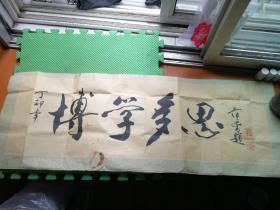 丁卯年
博学多思